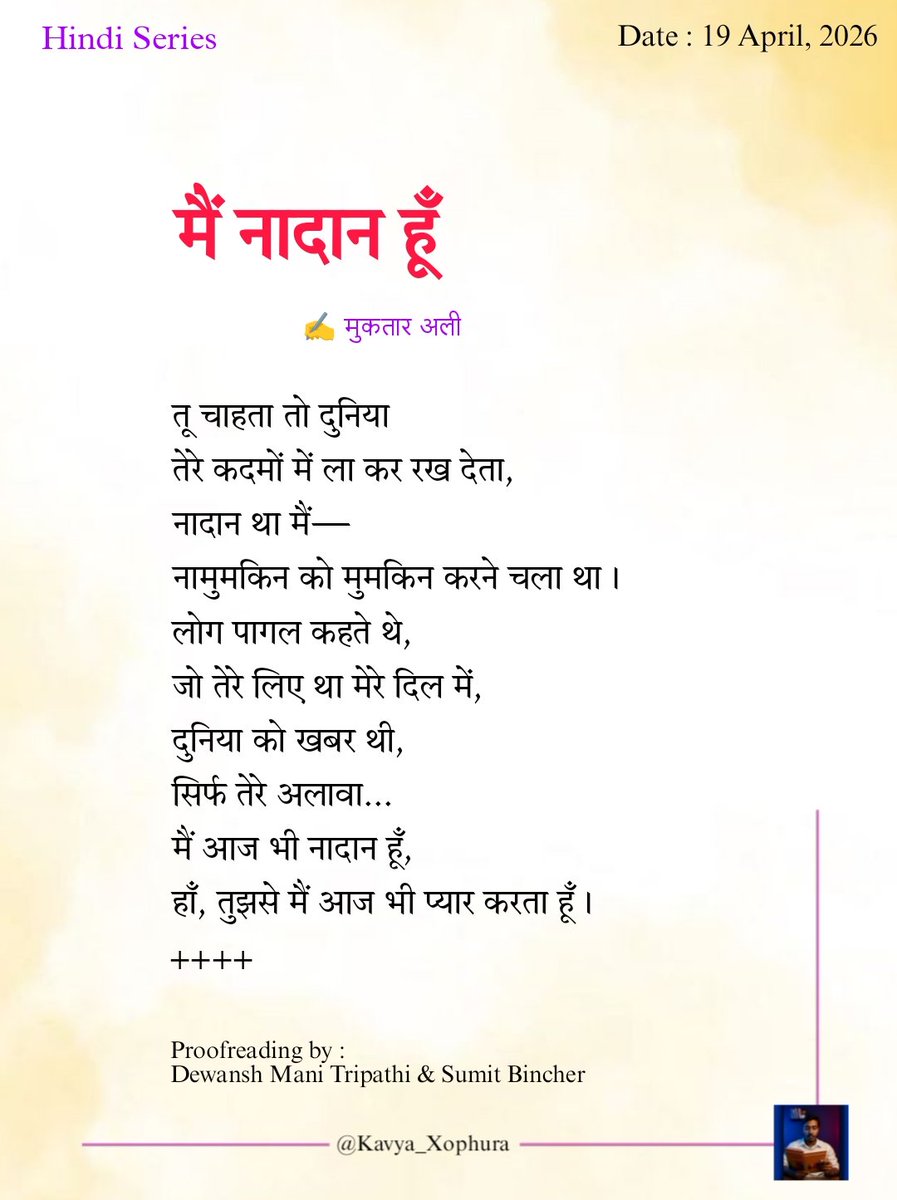 Hindi Series
Date : 19 April, 2026
मैं नादान हूँ
✍️ मुकतार अली
तू चाहता तो दुनिया
तेरे कदमों में ला कर रख देता,
नादान था मैं—
नामुमकिन को मुमकिन करने चला था।
लोग पागल कहते थे,
जो तेरे लिए था मेरे दिल में,
दुनिया को खबर थी,
सिर्फ तेरे अलावा...
मैं आज भी नादान हूँ,
हाँ, तुझसे मैं आज भी प्यार करता हूँ।
++++
Proofreading by :
Dewansh Mani Tripathi & Sumit Bincher
@Kavya_Xophura